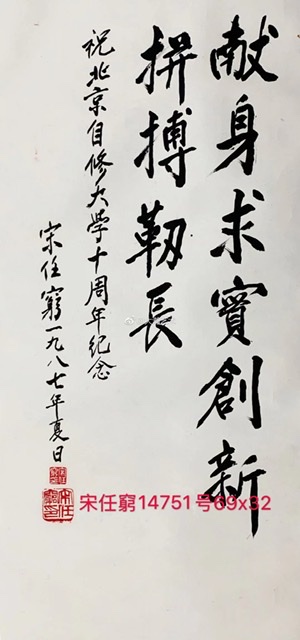 献身求實創新
拼搏韌長
祝北京自修大学十周年纪念
宋任窮一九八七年夏日
宋任窮14751号69x32